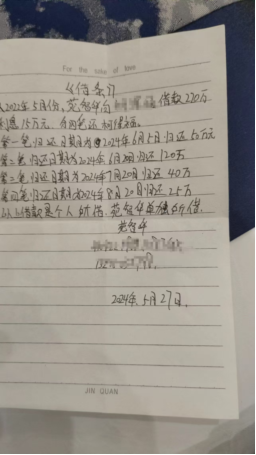 For the sake of love
《借条》
从2022年5月份,范智华向 借款220万
利息15万元,分四笔还
第一笔归还日期为2024年6月5日归还50万元
第二笔归还日期为2024年6月20日归还120万
第三笔归还日期为2024年7月20日归还40万
第四笔归还日期为2024年8月20日归还25万
以上借款是个人所借,范智华单独所借.
范智华
2024年5月27日.
JIN QUAN